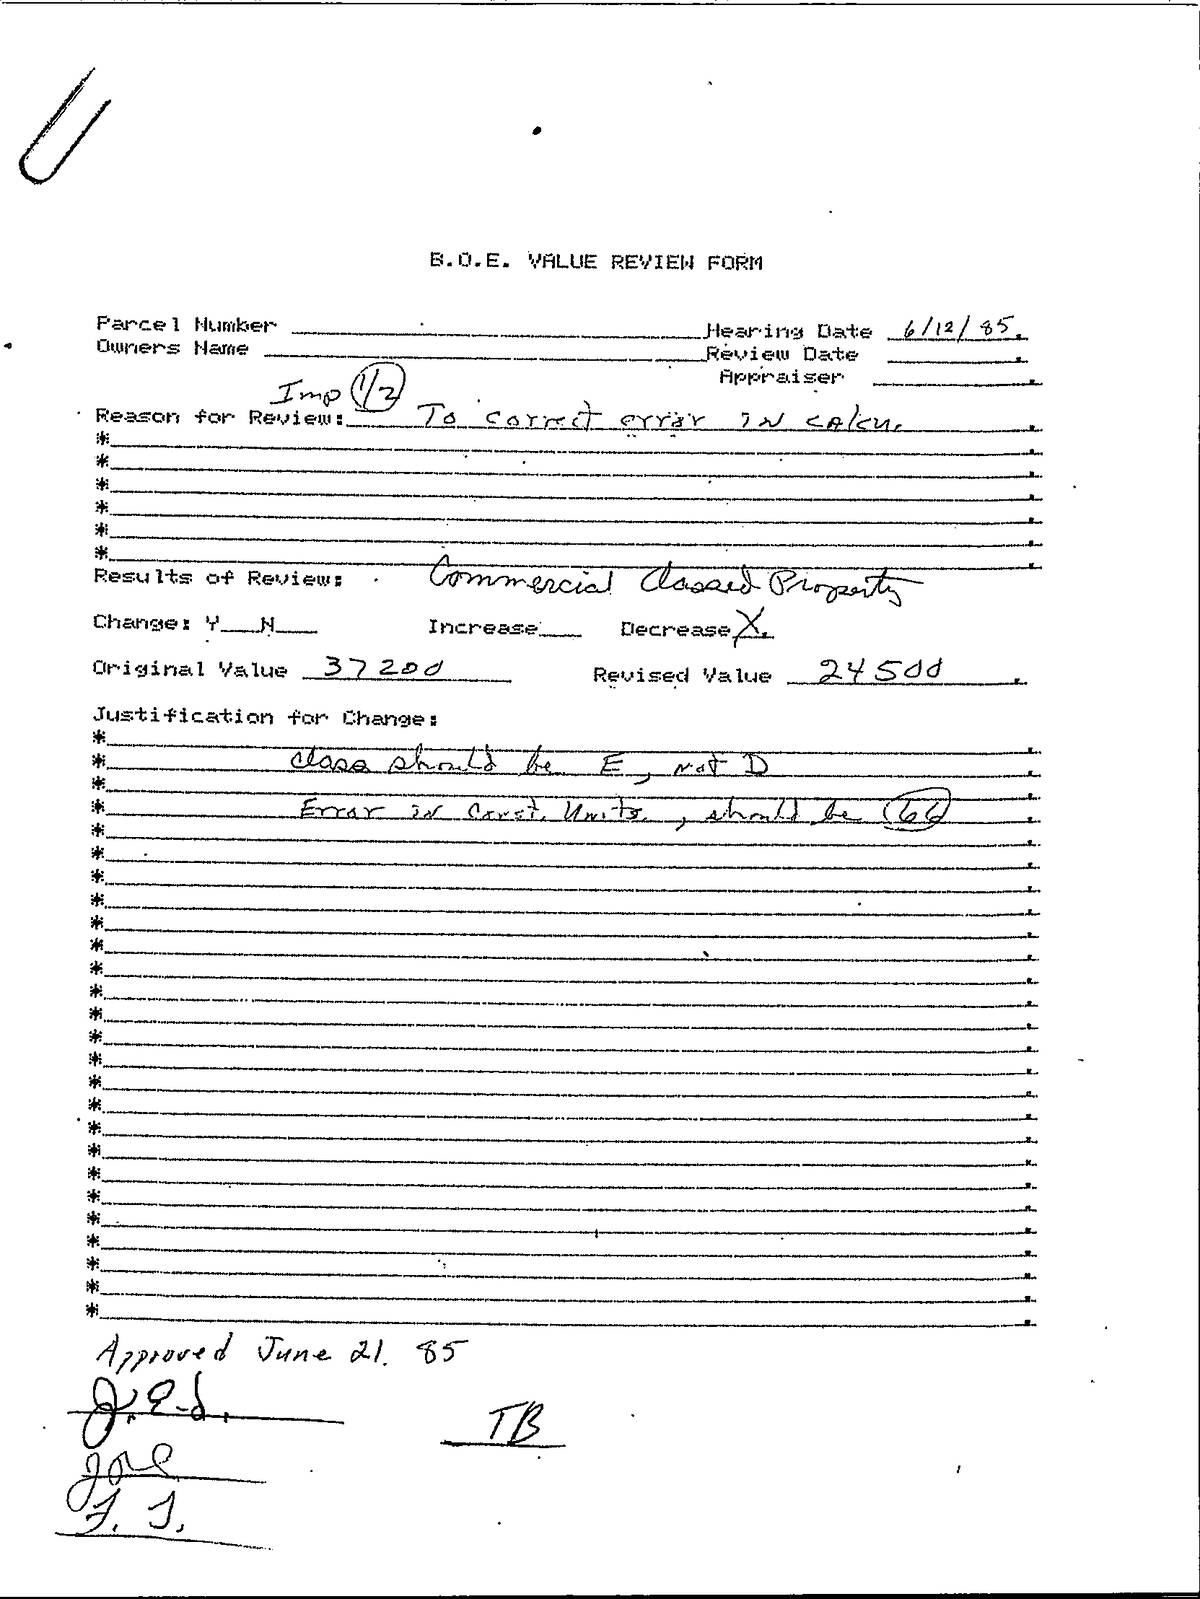 B.O.E. VALUE REVIEW FORM
Parcel Number Hearing Date 6/12/85.
Owners Name Review Date
Appraiser
Imp 1/2
Reason for Review: To correct error in calcu.
*
*
*
*
*
*
Results of Review: Commercial Classed Property
Change: Y___N___ Increase___ Decrease X.
Original Value 37200 Revised Value 24500.
Justification for Change:
*
* class should be E, not D
*
* Error in Const. Units, should be 66
*
*
*
*
*
*
*
*
*
*
*
*
*
*
*
*
*
*
*
*
*
*
Approved June 21. 85
TB
F. J.